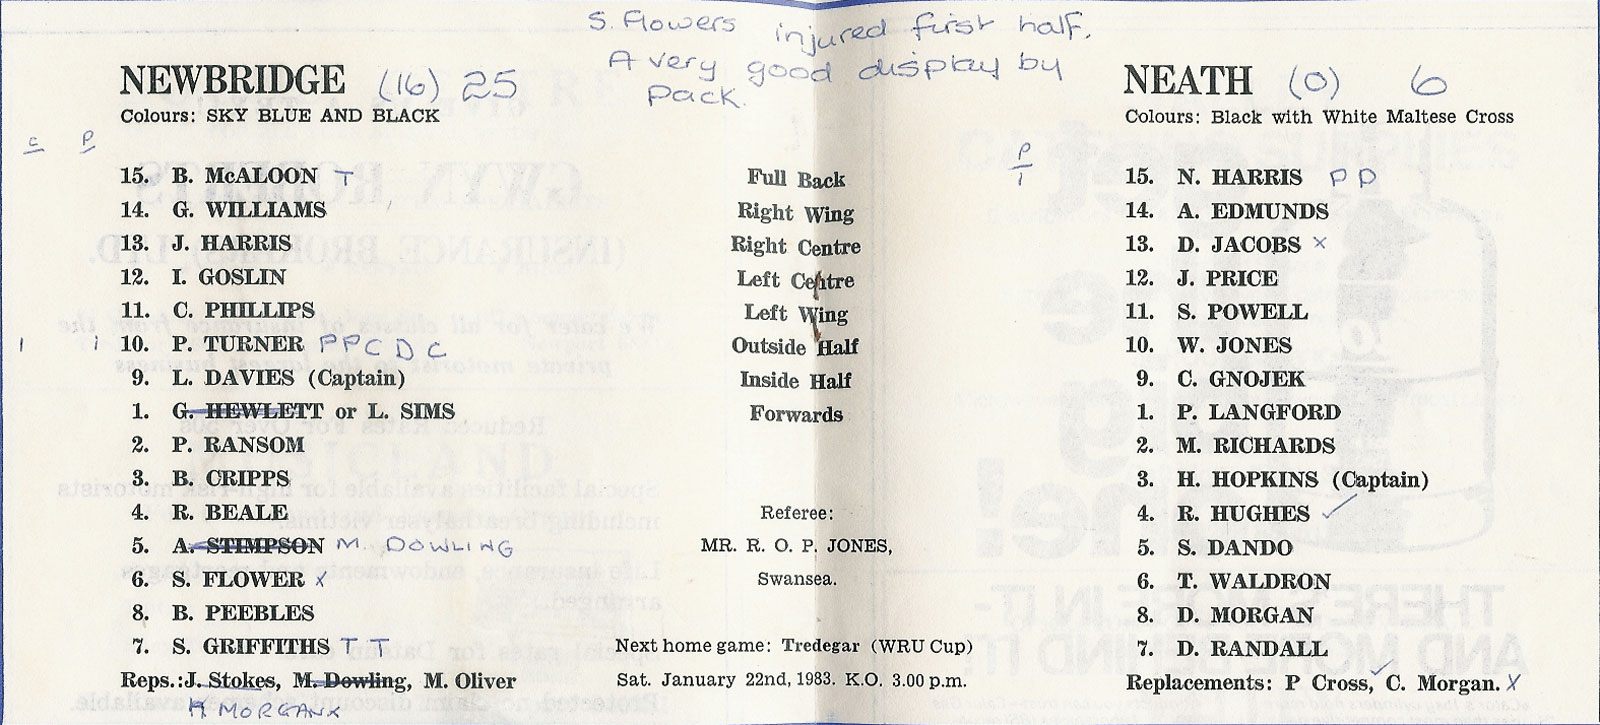 S. Flowers injured first half.
A very good display by
Pack.
NEWBRIDGE (16) 25
Colours: SKY BLUE AND BLACK
C P
15. B. McALOON T
14. G. WILLIAMS
13. J. HARRIS
12. I. GOSLIN
11. C. PHILLIPS
1 1 10. P. TURNER P P C D C
9. L. DAVIES (Captain)
1. G. HEWLETT or L. SIMS
2. P. RANSOM
3. B. CRIPPS
4. R. BEALE
5. A. STIMPSON M. DOWLING
6. S. FLOWER x
8. B. PEEBLES
7. S. GRIFFITHS T T
Reps.: J. Stokes, M. Dowling, M. Oliver
MORGAN x
Full Back
Right Wing
Right Centre
Left Centre
Left Wing
Outside Half
Inside Half
Forwards
Referee:
MR. R. O. P. JONES,
Swansea.
Next home game: Tredegar (WRU Cup)
Sat. January 22nd, 1983. K.O. 3.00 p.m.
NEATH (0) 6
Colours: Black with White Maltese Cross
P
1
15. N. HARRIS P D
14. A. EDMUNDS
13. D. JACOBS x
12. J. PRICE
11. S. POWELL
10. W. JONES
9. C. GNOJEK
1. P. LANGFORD
2. M. RICHARDS
3. H. HOPKINS (Captain)
4. R. HUGHES ✓
5. S. DANDO
6. T. WALDRON
8. D. MORGAN
7. D. RANDALL
Replacements: P Cross, ✓ C. Morgan. X